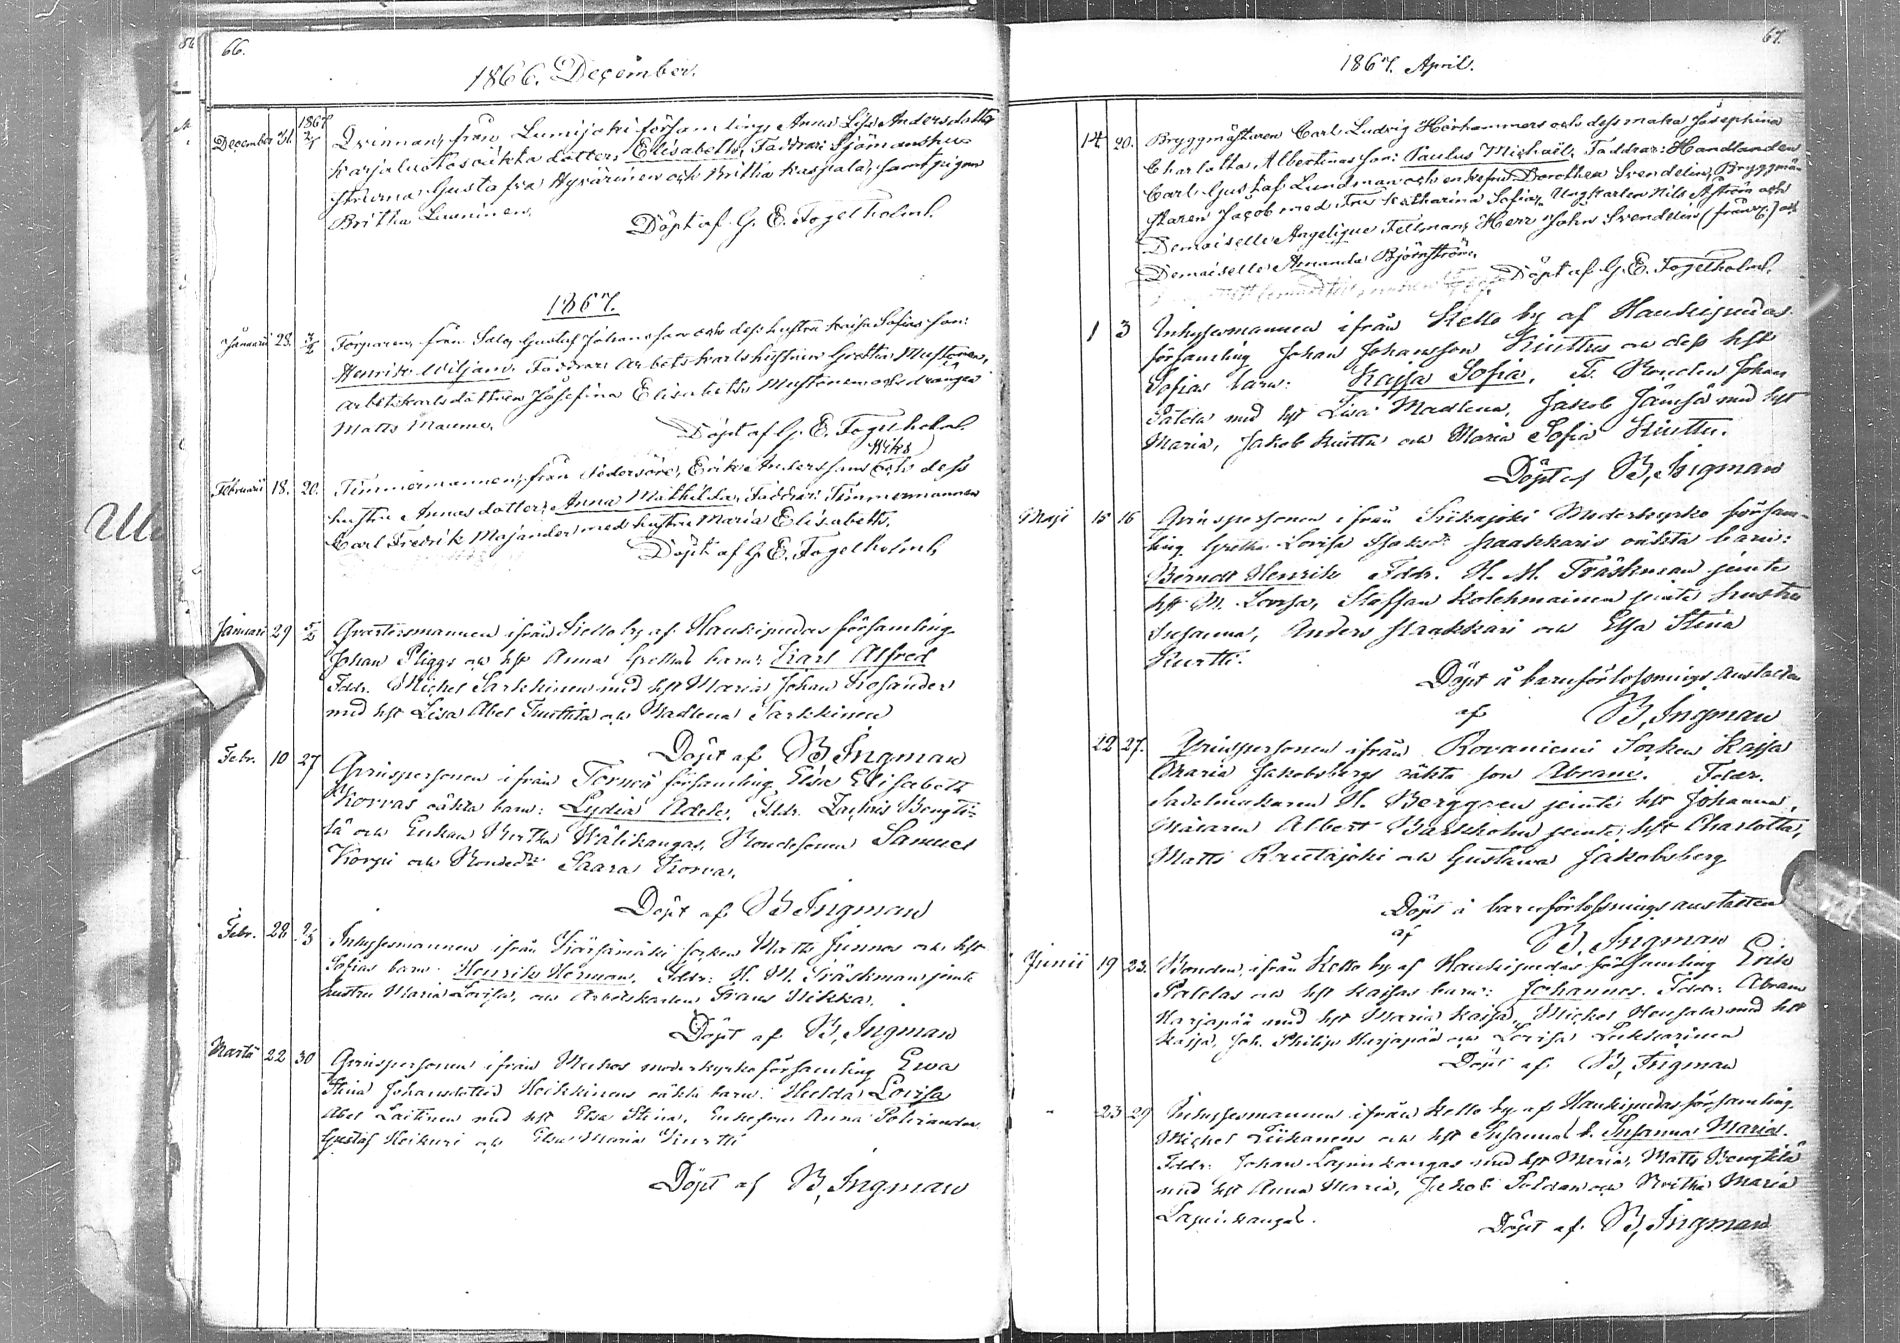 66.
1866. December.
December 31. 1867 2/1 Qvinnan, från Lumijoki församling, Anna Lisa Andersdotter
Karjaluotos oäkta dotter, Elisabeth, Faddrar: Sjömanshu-
struna Gustafva Hyvärinen och Britha Karjala, samt pigan
Britha Luminen.
Döpt af G. E. Fogelholm.
1867.
Januari 28. Torparen, från Salo, Gustaf Johansson och dess hustru Kaisa Sofias son:
Henrik Wiljam. Faddrar: Arbetskarlshustrun Gretha Mustonen,
arbetskarlsdottren Josefina Elisabeth Mustonen och drängen
Matts Maunu.
Döpt af G. E. Fogelholm
Wiks
Februari 18. 20. Timmermannen, från Pedersöre, Erik Anderssons och dess
hustru Annas dotter, Anna Mathilda, Faddrar: Timmermannen
Carl Fredrik Majander med hustru Maria Elisabeth.
Döpt af G. E. Fogelholm
Januari 29 5/2 ifrån Kello by af Haukipudas församling
Johan och hst Anna Grethas barn: Karl Alfred
Fddr. Michel Sarkkinen med hst Maria, Johan Rosander
med hst Lisa, Abel och Madlena Sarkkinen
Döpt af B, Ingman
Febr. 10 27 Qvinspersonen ifrån Torneå församling Elsa Elisabeth
Korvas oäkta barn: Lydia Adele, Fddr. Zachris Bengti-
lä och Enkan Britha Wälikangas, Bondesonen Samuel
Korpi och Bondedr Saara Korva.
Döpt af B Ingman
Febr. 28 2/3 Inhysesmannen ifrån Kärsämäki socken Matts Junnos och hst
Sofias barn: Henrik Herman, Fddr: H. M. Träskman jemte
hustru Maria Lovisa, och Arbetskarlen Frans Nikka.
Döpt af B, Ingman
Martii 22 30 Qvinspersonen ifrån Muhos moderkyrko församling Ewa
Stina Johansdotter Heikkinens oäkta barn: Hulda Lovisa
Abel Laitinen med hst Elsa Stina, Enkefru Anna Polviander
Gustaf Heikuri och Elsa Maria Kurtti
Döpt af B, Ingman
67.
1867. April.
14 20. Bryggmästaren Carl Ludvig Hörhammers och dess maka Josephina
Charlotta Albertinas son: Paulus Michaël, Faddrar: Handlanden
Carl Gustaf Lundman och enkefru Dorothea Svendelin, Bryggmä-
staren Jacob med fru Katharina Sofia, Ungkarlen Nils Åström och
Demoiselle Angelique Fellman, Herr John Svendelin (från ) och
Demoiselle Amanda Björnström.
Döpt af G. E. Fogelholm.
1 3 Inhysesmannen ifrån Kello by af Haukipudas
församling Johan Johansson Kinttu och dess hst
Sofias barn: Kajsa Sofia, F. Bonden Johan
Paldas med hst Lisa Madlena, Jakob Jämsä med hst
Maria, Jakob Kinttu och Maria Sofia Kinttu.
Döpt af B, Ingman
Maji 15 16 Qvinspersonen ifrån Siikajoki Moderkyrko försam-
ling Gretha Lovisa Jakobdr Haakkaris oäkta barn:
Berndt Henrik Fddr. H. M. Träskman jemte
hst M. Lovisa, Staffan Kolehmainen jemte hustru
Susanna, Anders Haakkari och Elsa Stina
Kurtti.
Döpt å barnförlossnings anstalten
af B, Ingman
22 27. Qvinspersonen ifrån Rovaniemi Socken Kajsa
Maria Jakobsbergs oäkta son Abram. Fddr.
Sadelmakaren H. Berggren jemte hst Johanna,
Målaren Albert Barkholm jemte hst Charlotta,
Matts Rautajoki och Gustava Jakobsberg
Döpt å barnförlossnings anstalten
af B, Ingman
Junii 19 23. Bonden ifrån Kello by af Haukipudas församling Erik
Paldas och hst Kaisas barn: Johannes. Fddr: Abram
Karjapää med hst Maria Kaisa, Michel Housula med hst
Kaisa, Joh. Philip Karjapää och Lovisa Pukkarinen
Döpt af B, Ingman
- 23 29 Inhysesmannen ifrån Kello by af Haukipudas församling
Michel Liikanens och hst Susannas b. Susanna Maria.
Fddr: Johan Lapinkangas med hst Maria, Matts Bengtilä
med hst Anna Maria, Jakob Paldan och Britha Maria
Lapinkangas.
Döpt af B, Ingman